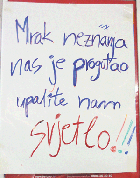 Mrak neznanja
nas je progutao
upalite nam
svjetlo!!!